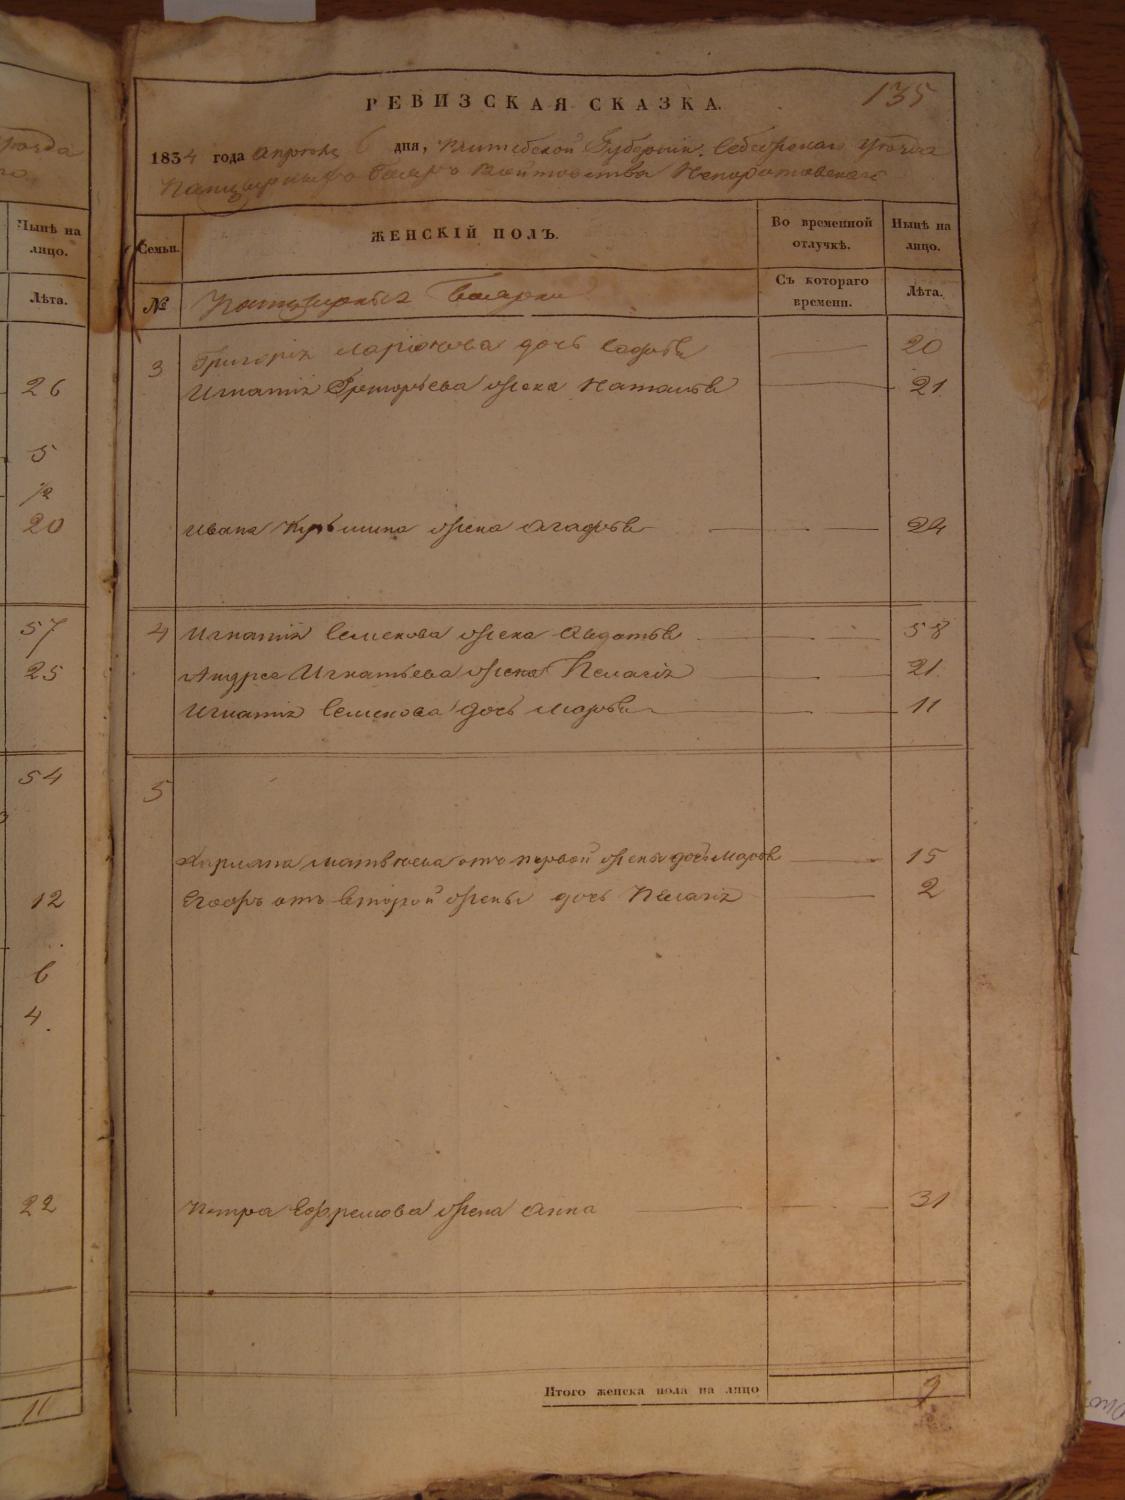 РЕВИЗСКАЯ СКАЗКА.
135
1834 года апреля 6 дня, Витебской Губернии. Себежскаго уезда
Панцырныхъ бояръ Войтовства Непоротовскаго
Семьи.
ЖЕНСКІЙ ПОЛЪ.
Во временной отлучкѣ.
Нынѣ на лицо.
№
Панцырныя боярки
Съ котораго времени.
Лѣта.
3
Григорія Ларіонова дочь 20
Игнатія Григорьева жена Наталья 21.
Ивана жена Агафья 24
4 Игнатія Семенова жена Авдотья 58
Андрея Игнатьева жена Пелагія 21.
Игнатія Семенова дочь Марья 11
5
Матвѣева отъ первой жены дочь Марья 15
Егожъ отъ второй жены дочь Пелагія 2
Петра Ефремова жена Анна 31
Итого женска пола на лицо 9
Нынѣ на лицо.
Лѣта.
26
5
½
20
57
25
54
12
6
4.
22
11